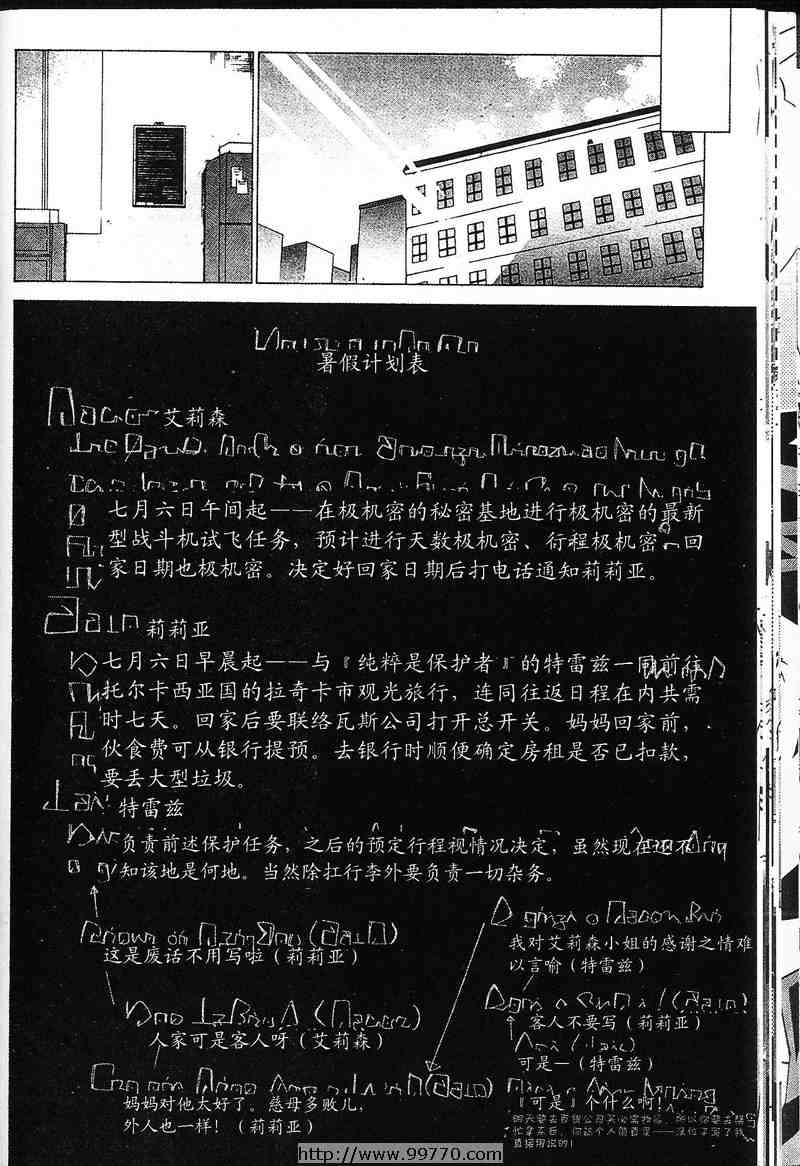 暑假计划表
艾莉森
七月六日午间起——在极机密的秘密基地进行极机密的最新
型战斗机试飞任务，预计进行天数极机密、衍程极机密、回
家日期也极机密。决定好回家日期后打电话通知莉莉亚。
莉莉亚
七月六日早晨起——与『纯粹是保护者』的特雷兹一同前往
托尔卡西亚国的拉奇卡市观光旅行，连同往返日程在内共需
时七天。回家后要联络瓦斯公司打开总开关。妈妈回家前，
伙食费可从银行提预。去银行时顺便确定房租是否已扣款，
要丢大型垃圾。
特雷兹
负责前述保护任务，之后的预定行程视情况决定，虽然现在还不
知该地是何地。当然除扛行李外要负责一切杂务。
这是废话不用写啦（莉莉亚）
人家可是客人呀（艾莉森）
妈妈对他太好了。慈母多败儿，
外人也一样！（莉莉亚）
我对艾莉森小姐的感谢之情难
以言喻（特雷兹）
客人不要写（莉莉亚）
可是—（特雷兹）
『可是』个什么啊！
直接用说的！
http://www.99770.com